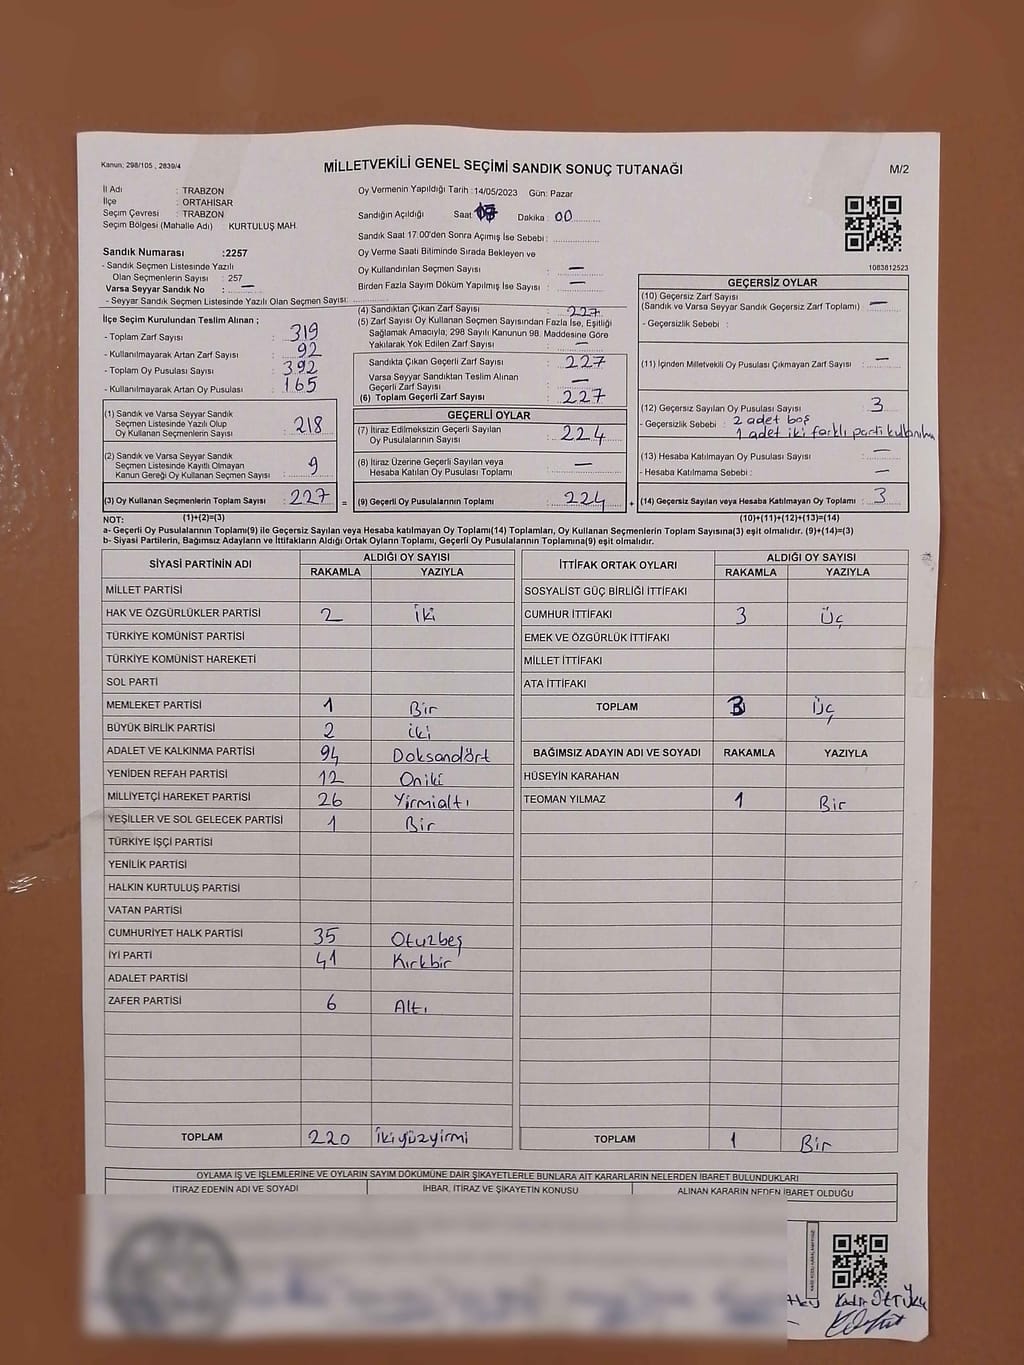 Kanun: 298/105 , 2839/4
MİLLETVEKİLİ GENEL SEÇİMİ SANDIK SONUÇ TUTANAĞI
M/2
İl Adı : TRABZON
İlçe : ORTAHİSAR
Seçim Çevresi : TRABZON
Seçim Bölgesi (Mahalle Adı) KURTULUŞ MAH.
Sandık Numarası :2257
- Sandık Seçmen Listesinde Yazılı
Olan Seçmenlerin Sayısı : 257
Varsa Seyyar Sandık No : —
- Seyyar Sandık Seçmen Listesinde Yazılı Olan Seçmen Sayısı:
Oy Vermenin Yapıldığı Tarih :14/05/2023 Gün: Pazar
Sandığın Açıldığı Saat Dakika : 00
Sandık Saat 17:00'den Sonra Açımış İse Sebebi :
Oy Verme Saati Bitiminde Sırada Bekleyen ve
Oy Kullandırılan Seçmen Sayısı : —
Birden Fazla Sayım Döküm Yapılmış İse Sayısı : —
1083812523
İlçe Seçim Kurulundan Teslim Alınan ;
- Toplam Zarf Sayısı : 319
- Kullanılmayarak Artan Zarf Sayısı : 92
- Toplam Oy Pusulası Sayısı : 392
- Kullanılmayarak Artan Oy Pusulası : 165
(1) Sandık ve Varsa Seyyar Sandık
Seçmen Listesinde Yazılı Olup
Oy Kullanan Seçmenlerin Sayısı : 218
(2) Sandık ve Varsa Seyyar Sandık
Seçmen Listesinde Kayıtlı Olmayan
Kanun Gereği Oy Kullanan Seçmen Sayısı : 9
(3) Oy Kullanan Seçmenlerin Toplam Sayısı : 227 =
(4) Sandıktan Çıkan Zarf Sayısı : 227
(5) Zarf Sayısı Oy Kullanan Seçmen Sayısından Fazla İse, Eşitliği
Sağlamak Amacıyla; 298 Sayılı Kanunun 98. Maddesine Göre
Yakılarak Yok Edilen Zarf Sayısı : —
Sandıkta Çıkan Geçerli Zarf Sayısı : 227
Varsa Seyyar Sandıktan Teslim Alınan
Geçerli Zarf Sayısı : —
(6) Toplam Geçerli Zarf Sayısı : 227
GEÇERLİ OYLAR
(7) İtiraz Edilmeksizin Geçerli Sayılan
Oy Pusulalarının Sayısı : 224
(8) İtiraz Üzerine Geçerli Sayılan veya
Hesaba Katılan Oy Pusulası Toplamı : —
(9) Geçerli Oy Pusulalarının Toplamı : 224 +
GEÇERSİZ OYLAR
(10) Geçersiz Zarf Sayısı
(Sandık ve Varsa Seyyar Sandık Geçersiz Zarf Toplamı) : —
- Geçersizlik Sebebi :
(11) İçinden Milletvekili Oy Pusulası Çıkmayan Zarf Sayısı : —
(12) Geçersiz Sayılan Oy Pusulası Sayısı : 3
- Geçersizlik Sebebi : 2 adet boş
1 adet iki farklı parti
(13) Hesaba Katılmayan Oy Pusulası Sayısı : —
- Hesaba Katılmama Sebebi : —
(14) Geçersiz Sayılan veya Hesaba Katılmayan Oy Toplamı : 3
NOT: (1)+(2)=(3) (10)+(11)+(12)+(13)=(14)
a- Geçerli Oy Pusulalarının Toplamı(9) ile Geçersiz Sayılan veya Hesaba katılmayan Oy Toplam(14) Toplamları, Oy Kullanan Seçmenlerin Toplam Sayısına(3) eşit olmalıdır. (9)+(14)=(3)
b- Siyasi Partilerin, Bağımsız Adayların ve İttifakların Aldığı Ortak Oyların Toplamı, Geçerli Oy Pusulalarının Toplamına(9) eşit olmalıdır.
SİYASİ PARTİNİN ADI ALDIĞI OY SAYISI
RAKAMLA YAZIYLA
MİLLET PARTİSİ
HAK VE ÖZGÜRLÜKLER PARTİSİ 2 İki
TÜRKİYE KOMÜNİST PARTİSİ
TÜRKİYE KOMÜNİST HAREKETİ
SOL PARTİ
MEMLEKET PARTİSİ 1 Bir
BÜYÜK BİRLİK PARTİSİ 2 iki
ADALET VE KALKINMA PARTİSİ 94 Doksandört
YENİDEN REFAH PARTİSİ 12 Oniki
MİLLİYETÇİ HAREKET PARTİSİ 26 Yirmialtı
YEŞİLLER VE SOL GELECEK PARTİSİ 1 Bir
TÜRKİYE İŞÇİ PARTİSİ
YENİLİK PARTİSİ
HALKIN KURTULUŞ PARTİSİ
VATAN PARTİSİ
CUMHURİYET HALK PARTİSİ 35 Otuzbeş
İYİ PARTİ 41 Kırkbir
ADALET PARTİSİ
ZAFER PARTİSİ 6 Altı
TOPLAM 220 İkiyüzyirmi
İTTİFAK ORTAK OYLARI ALDIĞI OY SAYISI
RAKAMLA YAZIYLA
SOSYALİST GÜÇ BİRLİĞİ İTTİFAKI
CUMHUR İTTİFAKI 3 Üç
EMEK VE ÖZGÜRLÜK İTTİFAKI
MİLLET İTTİFAKI
ATA İTTİFAKI
TOPLAM 3 Üç
BAĞIMSIZ ADAYIN ADI VE SOYADI RAKAMLA YAZIYLA
HÜSEYİN KARAHAN
TEOMAN YILMAZ 1 Bir
TOPLAM 1 Bir
OYLAMA İŞ VE İŞLEMLERİNE VE OYLARIN SAYIM DÖKÜMÜNE DAİR ŞİKAYETLERLE BUNLARA AİT KARARLARIN NELERDEN İBARET BULUNDUKLARI
İTİRAZ EDENİN ADI VE SOYADI İHBAR, İTİRAZ VE ŞİKAYETİN KONUSU ALINAN KARARIN NEDEN İBARET OLDUĞU
Kadir